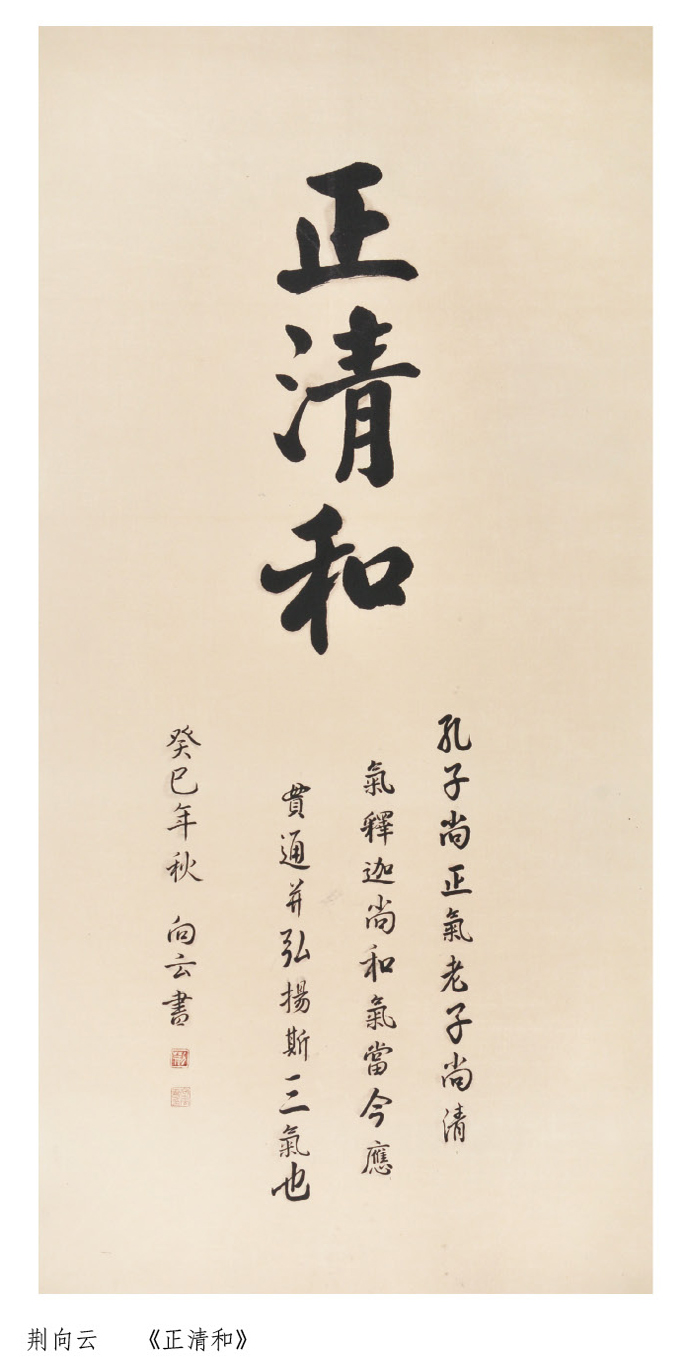 正清和
孔子尚正氣老子尚清
氣釋迦尚和氣當今應
貫通并弘揚斯三氣也
癸巳年秋 向云書
荆向云 《正清和》